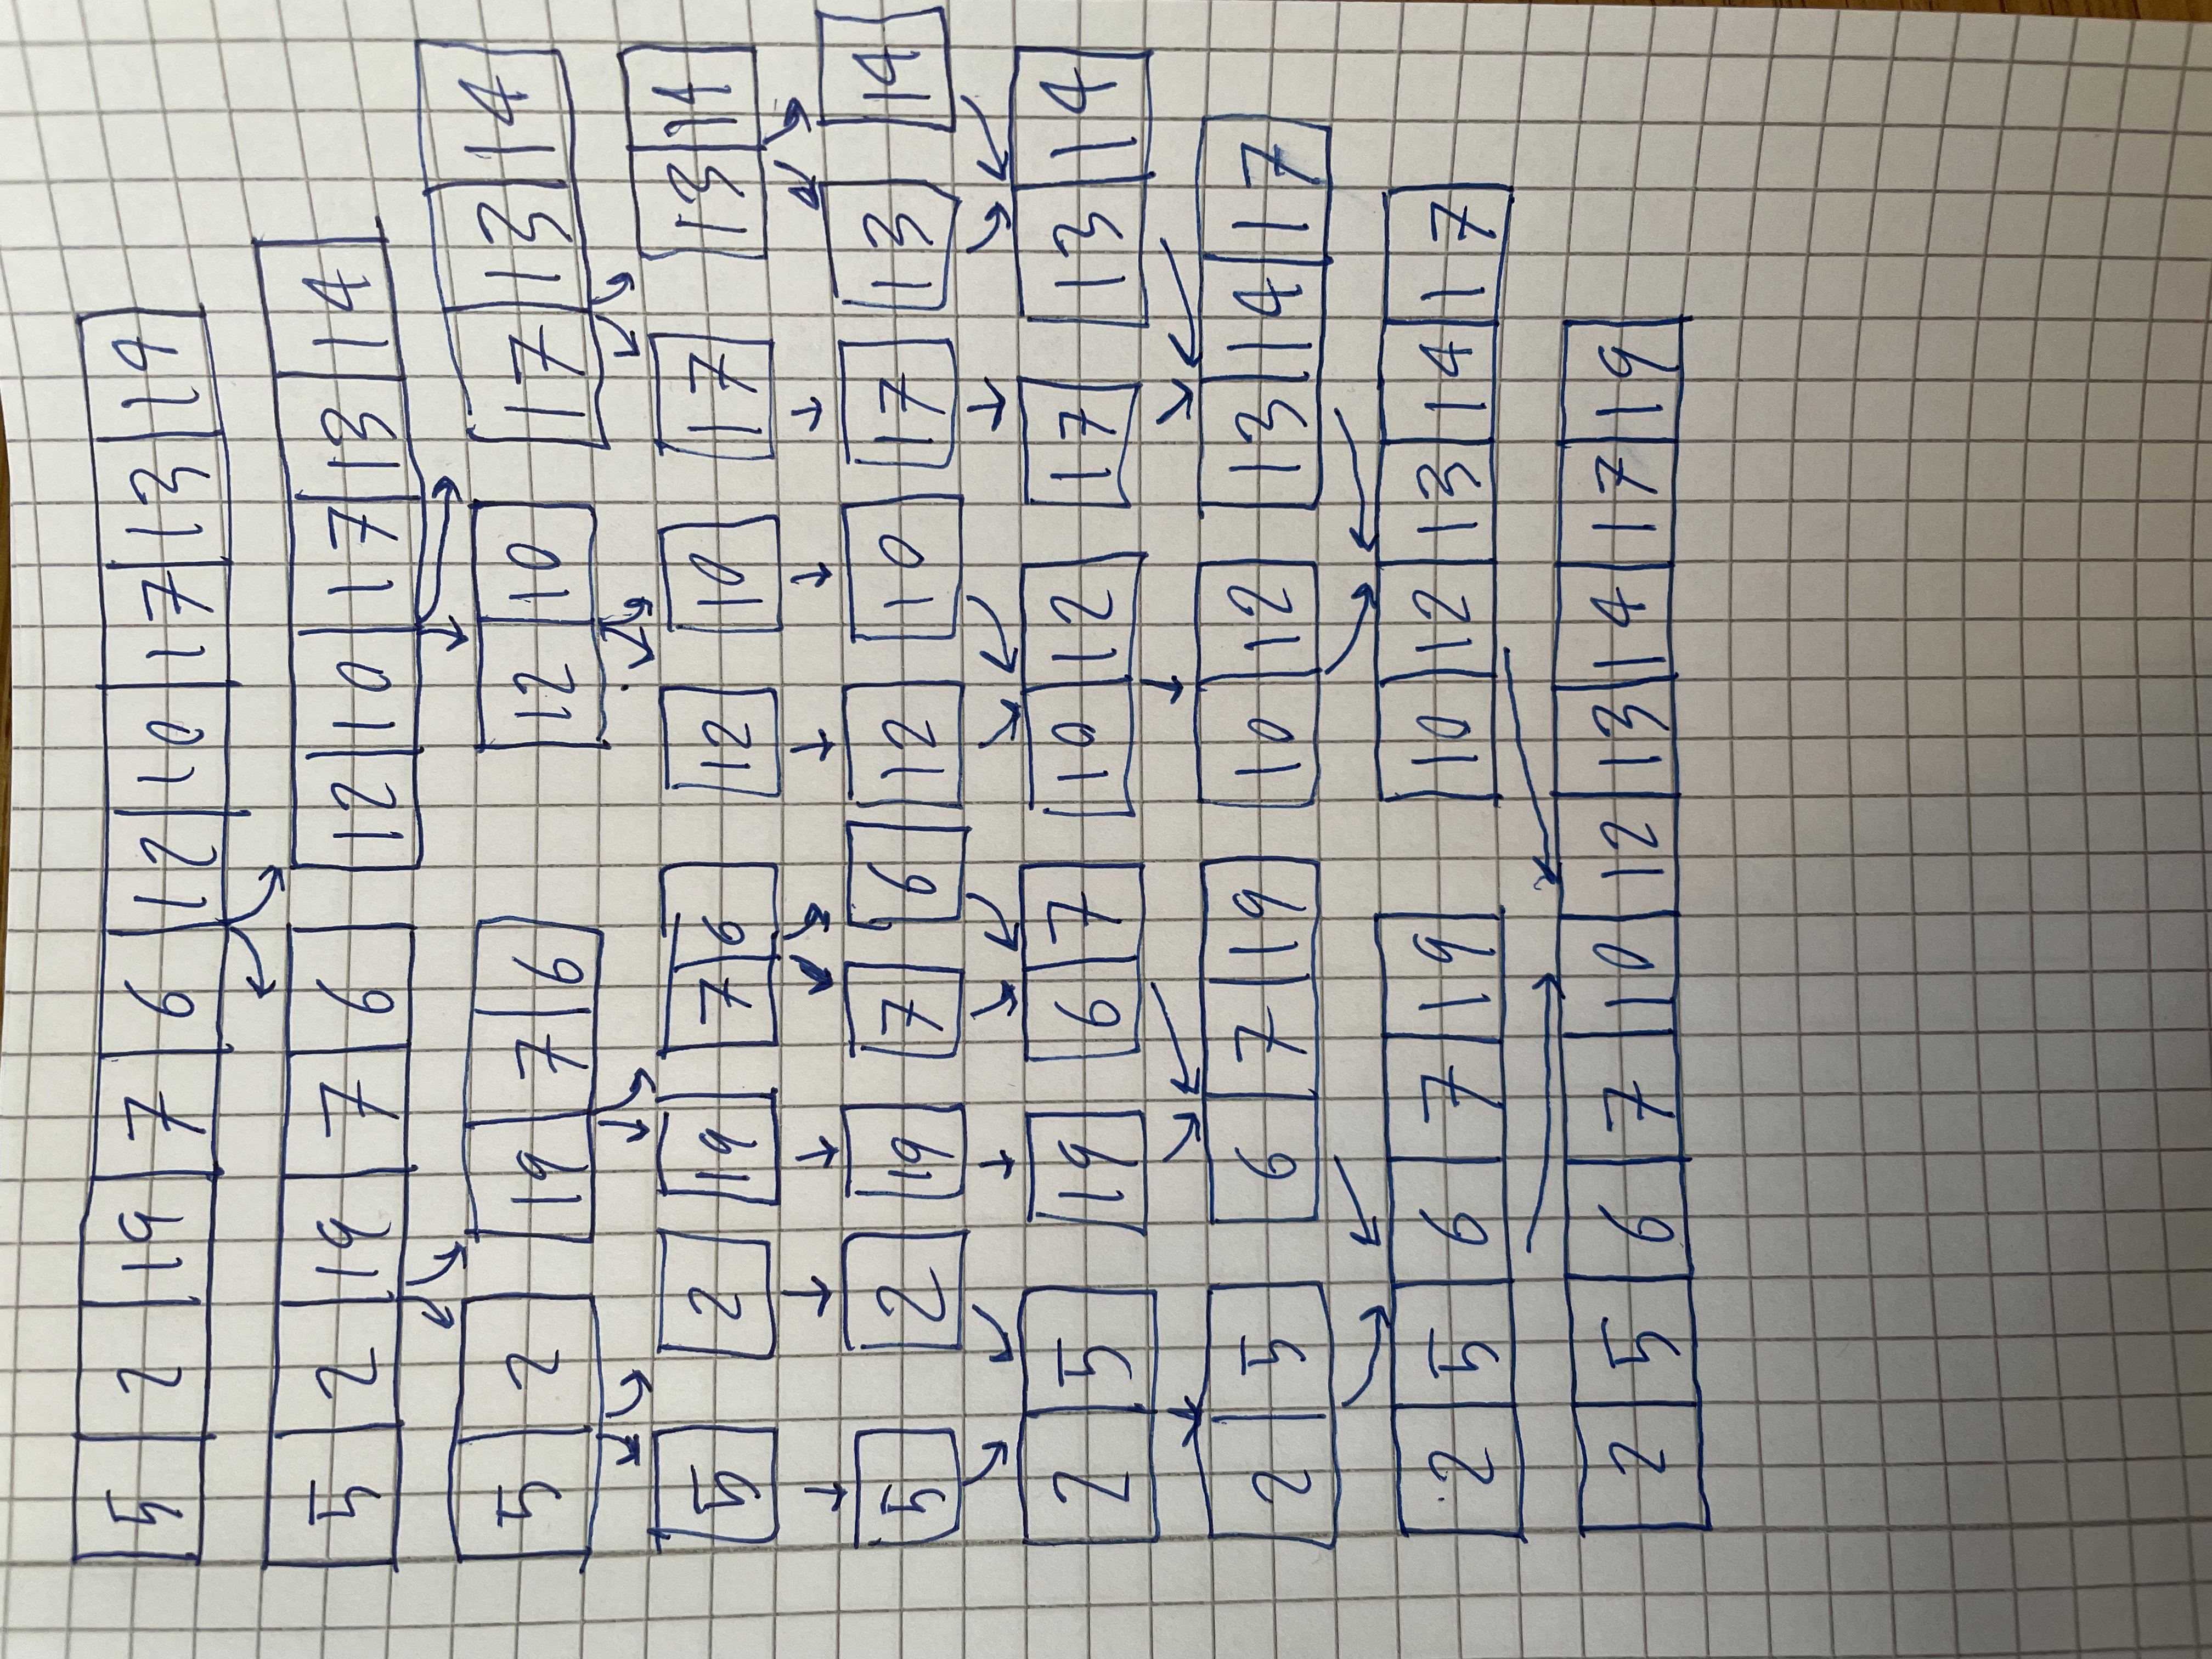 5 2 19 7 6 12 10 17 13 14
5 2 19 7 6 12 10 17 13 14
5 2 19 7 6 12 10 17 13 14
5 2 19 7 6 12 10 17 13 14
5 2 19 7 6 12 10 17 13 14
2 5 19 6 7 10 12 17 13 14
2 5 6 7 19 10 12 13 14 17
2 5 6 7 19 10 12 13 14 17
2 5 6 7 10 12 13 14 17 19